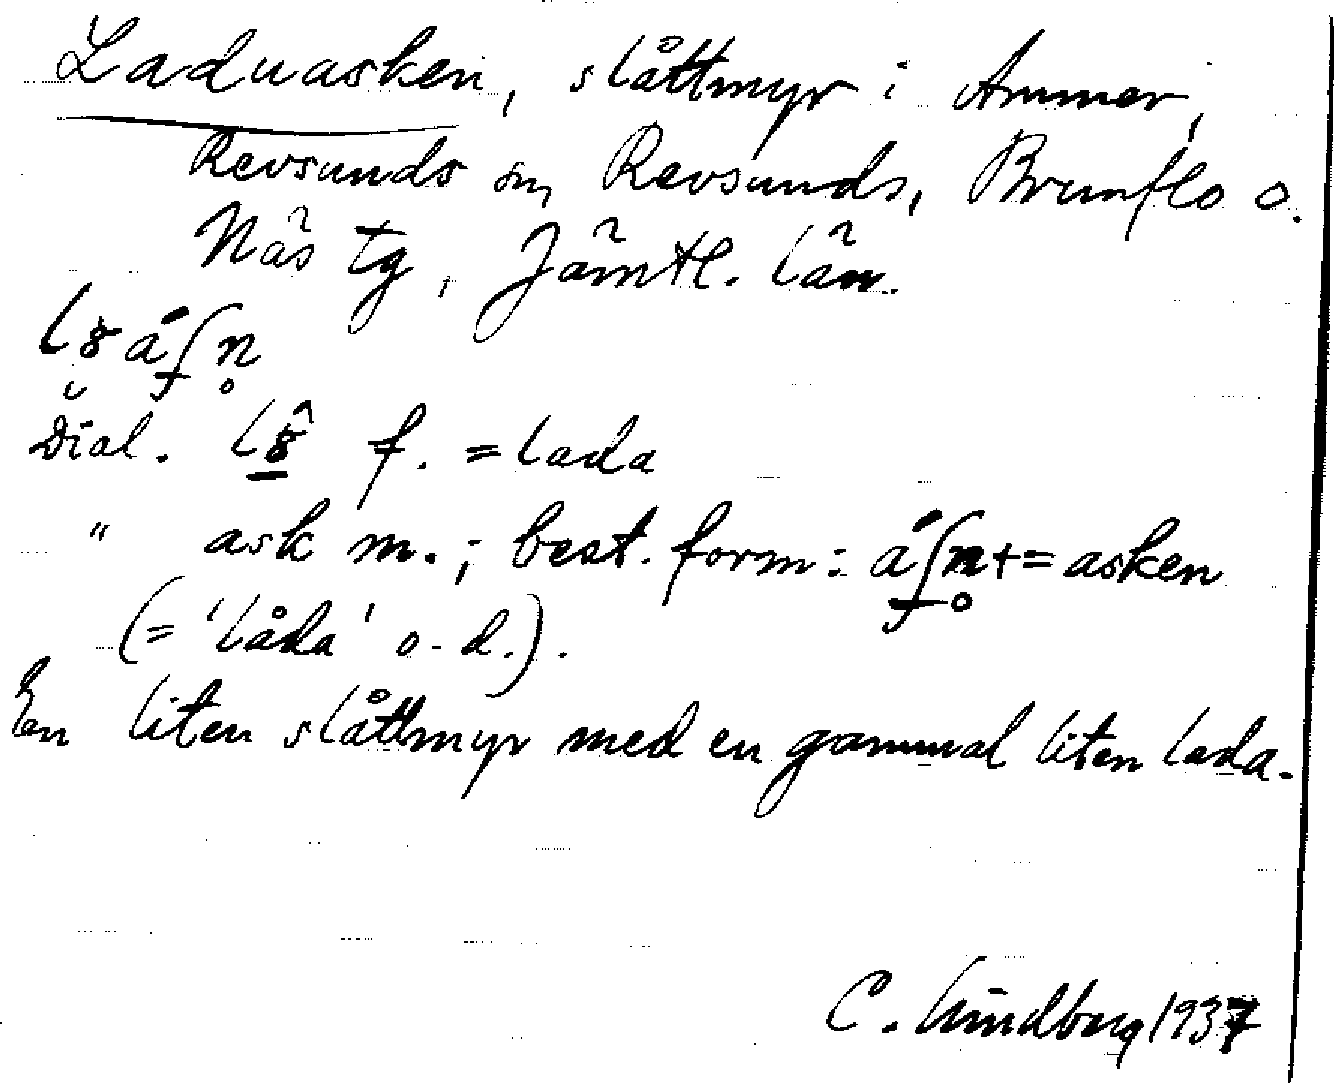 Laduasken, slåttmyr i Ammer,
Revsunds sn, Revsunds, Brunflo o.
Näs tg, Jämtl. län.
Dial. f. = lada
" ask m.; best. form: = asken
(= 'låda' o. d.).
En liten slåttmyr med en gammal liten lada.
C. Lindberg 1937